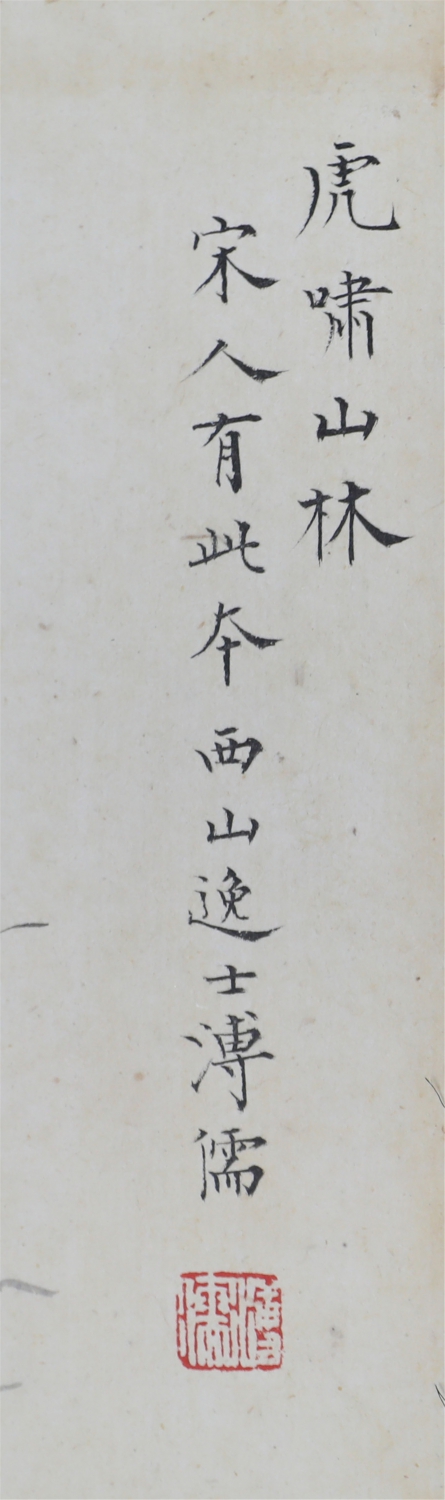 虎嘯山林
宋人有此本西山逸士溥儒
溥儒